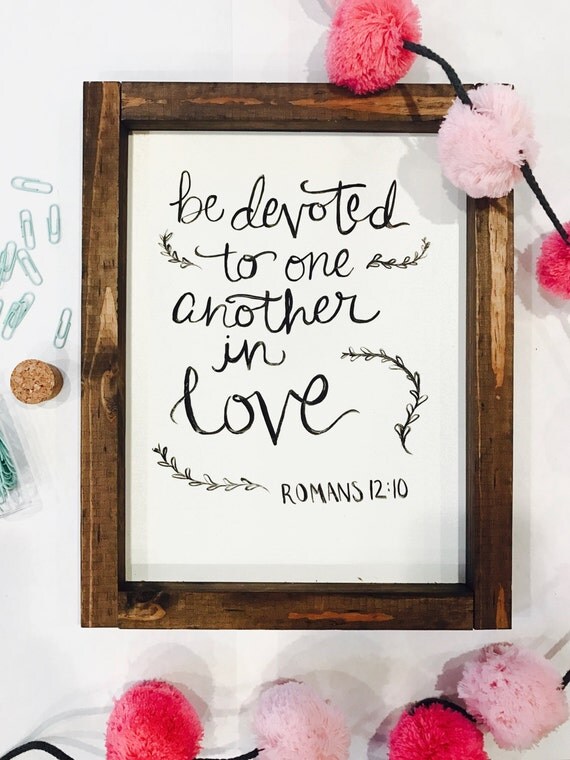 be devoted
to one
another
in
love
ROMANS 12:10